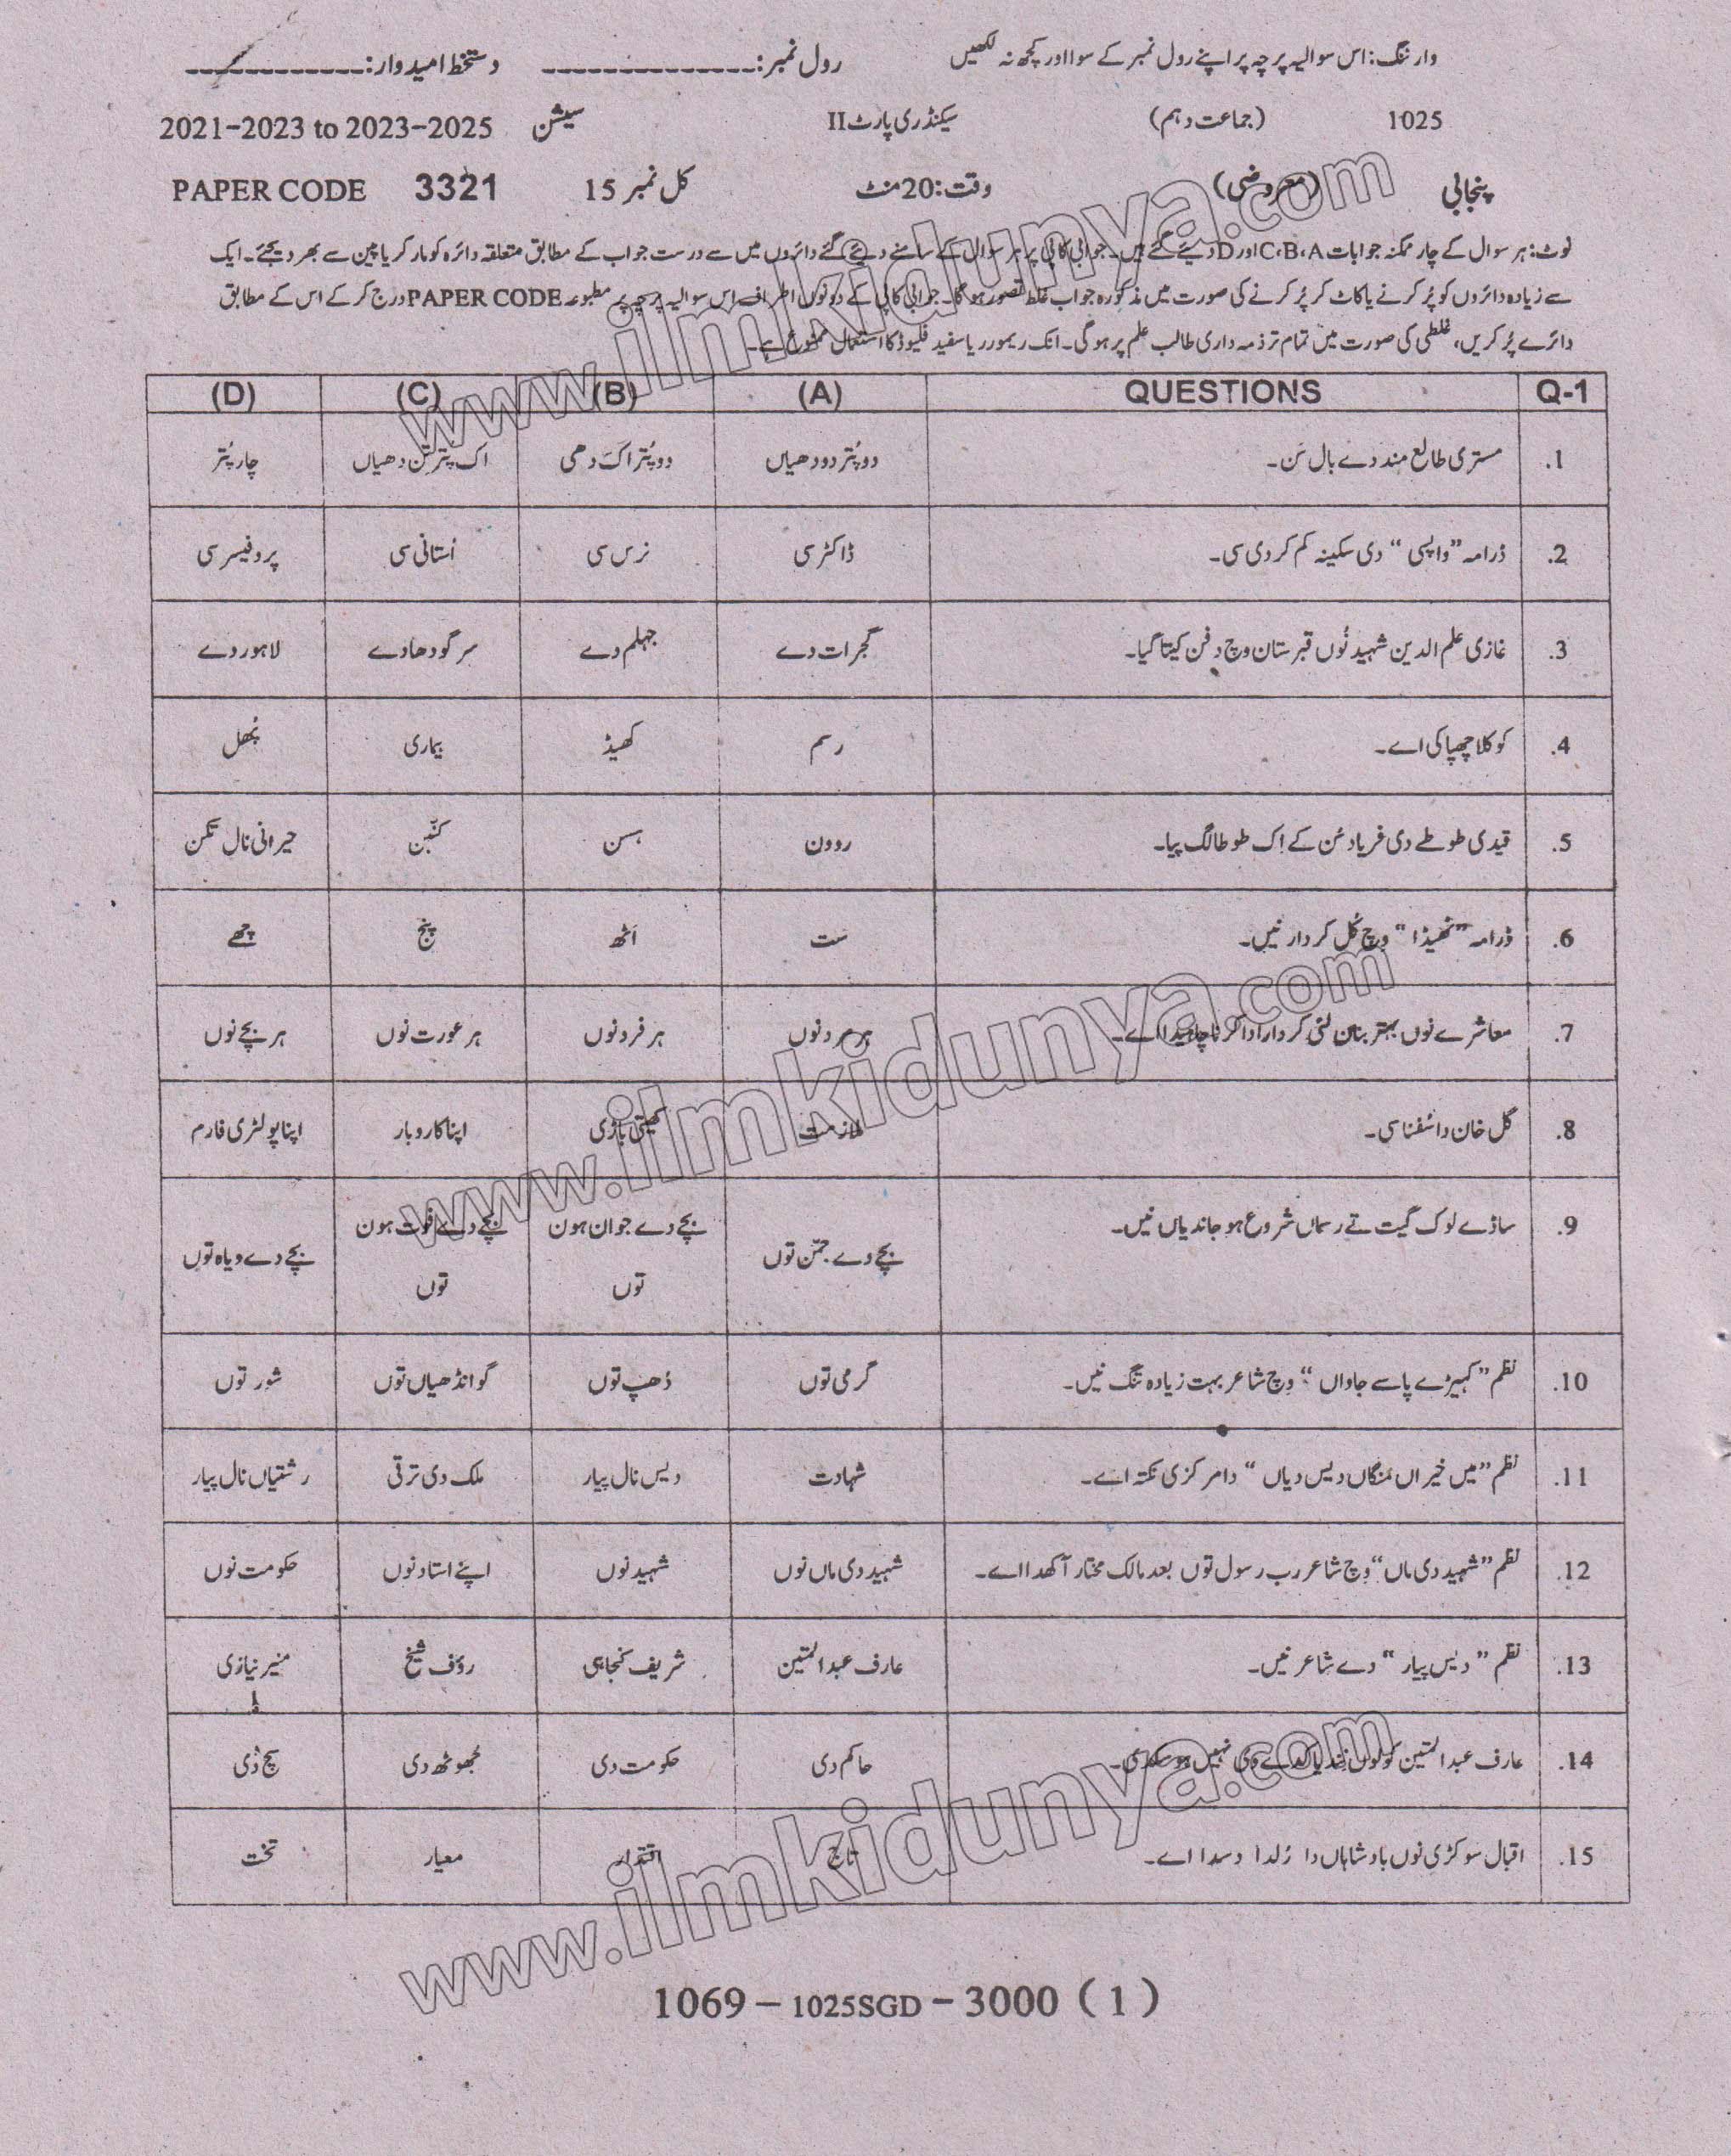 وارننگ: اس سوالیہ پرچہ پر اپنے رول نمبر کے سوا اور کچھ نہ لکھیں رول نمبر:______________ دستخط امیدوار:____________
1025 (جماعت دہم) سیکنڈری پارٹ II سیشن 2021-2023 to 2023-2025
پنجابی (معروضی) وقت: 20 منٹ کل نمبر 15 PAPER CODE 3321
نوٹ: ہر سوال کے چار ممکنہ جوابات A،B،C اور D دیئے گئے ہیں۔ جوابی کاپی پر ہر سوال کے سامنے دیئے گئے دائروں میں سے درست جواب کے مطابق متعلقہ دائرہ کو مارکر یا پین سے بھر دیجئے۔ ایک
سے زیادہ دائروں کو پُر کرنے یا کاٹ کر پُر کرنے کی صورت میں مذکورہ جواب غلط تصور ہوگا۔ جوابی کاپی کے دونوں اطراف اس سوالیہ پرچہ پر مطبوعہ PAPER CODE درج کر کے اس کے مطابق
دائرے پُر کریں، غلطی کی صورت میں تمام تر ذمہ داری طالب علم پر ہوگی۔ انک ریموور یا سفید فلیوڈ کا استعمال ممنوع ہے۔
Q-1 QUESTIONS (A) (B) (C) (D)
1. مستری طالع مند دے بال سَن۔ دو پُتر دو دھیاں دو پُتر اک دھی اک پتر تِن دھیاں چار پُتر
2. ڈرامہ "واپسی" دی سکینہ کم کردی سی۔ ڈاکٹر سی نرس سی اُستانی سی پروفیسر سی
3. غازی علم الدین شہید نُوں قبرستان وچ دفن کیتا گیا۔ گجرات دے جہلم دے سرگودھا دے لاہور دے
4. کوکلا چھپاکی اے۔ رسم کھیڈ بیماری پُھل
5. قیدی طوطے دی فریاد سُن کے اِک طوطا لگ پیا۔ روون ہسن کنّبن حیرانی نال تکن
6. ڈرامہ "ٹھیڈا" وچ کُل کردار نیں۔ ست اٹھ پنج چھے
7. معاشرے نوں بہتر بنان لئی کردار ادا کرنا چاہیدا اے۔ ہر مرد نوں ہر فرد نوں ہر عورت نوں ہر بچے نوں
8. گل خان دا سُفنا سی۔ ملازمت کھیتی باڑی اپنا کاروبار اپنا پولٹری فارم
9. ساڈے لوک گیت تے رسماں شروع ہو جاندیاں نیں۔ بچے دے جمّن توں بچے دے جوان ہون توں بچے دے فوت ہون توں بچے دے ویاہ توں
10. نظم "کہیڑے پاسے جاواں" وچ شاعر بہت زیادہ تنگ نیں۔ گرمی توں دُھپ توں گوانڈھیاں توں شور توں
11. نظم "میں خیراں منگاں دیس دیاں" دا مرکزی نکتہ اے۔ شہادت دیس نال پیار ملک دی ترقی رشتیاں نال پیار
12. نظم "شہید دی ماں" وچ شاعر رب رسول توں بعد مالک مختار آکھدا اے۔ شہید دی ماں نوں شہید نوں اپنے استاد نوں حکومت نوں
13. نظم "دیس پیار" دے شاعر نیں۔ عارف عبدالمتین شریف کنجاہی رؤف شیخ منیر نیازی
14. عارف عبدالمتین کولوں نندیا کدے وی نہیں ہو سکدی۔ حاکم دی حکومت دی جُھوٹھ دی سچ دی
15. اقبال سوکڑی نوں بادشاہاں دا رُلدا دسدا اے۔ تاج اقتدار معیار تخت
1069 – 1025SGD – 3000 ( 1 )
www.ilmkidunya.com
www.ilmkidunya.com
www.ilmkidunya.com